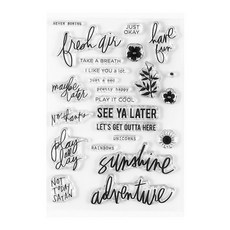 NEVER BORING
JUST
OKAY.
fresh air
have
fun
TAKE A BREATH
I LIKE YOU A lot
maybe
later
pretty happy
PLAY IT COOL
No thanks
SEE YA LATER
LET'S GET OUTTA HERE
UNICORNS
RAINBOWS
play
all
day
sunshine
NOT
TODAY
SATAN
adventure